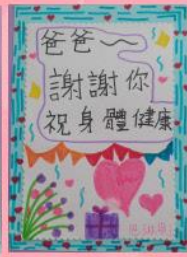 爸爸～
謝謝你
祝身體健康